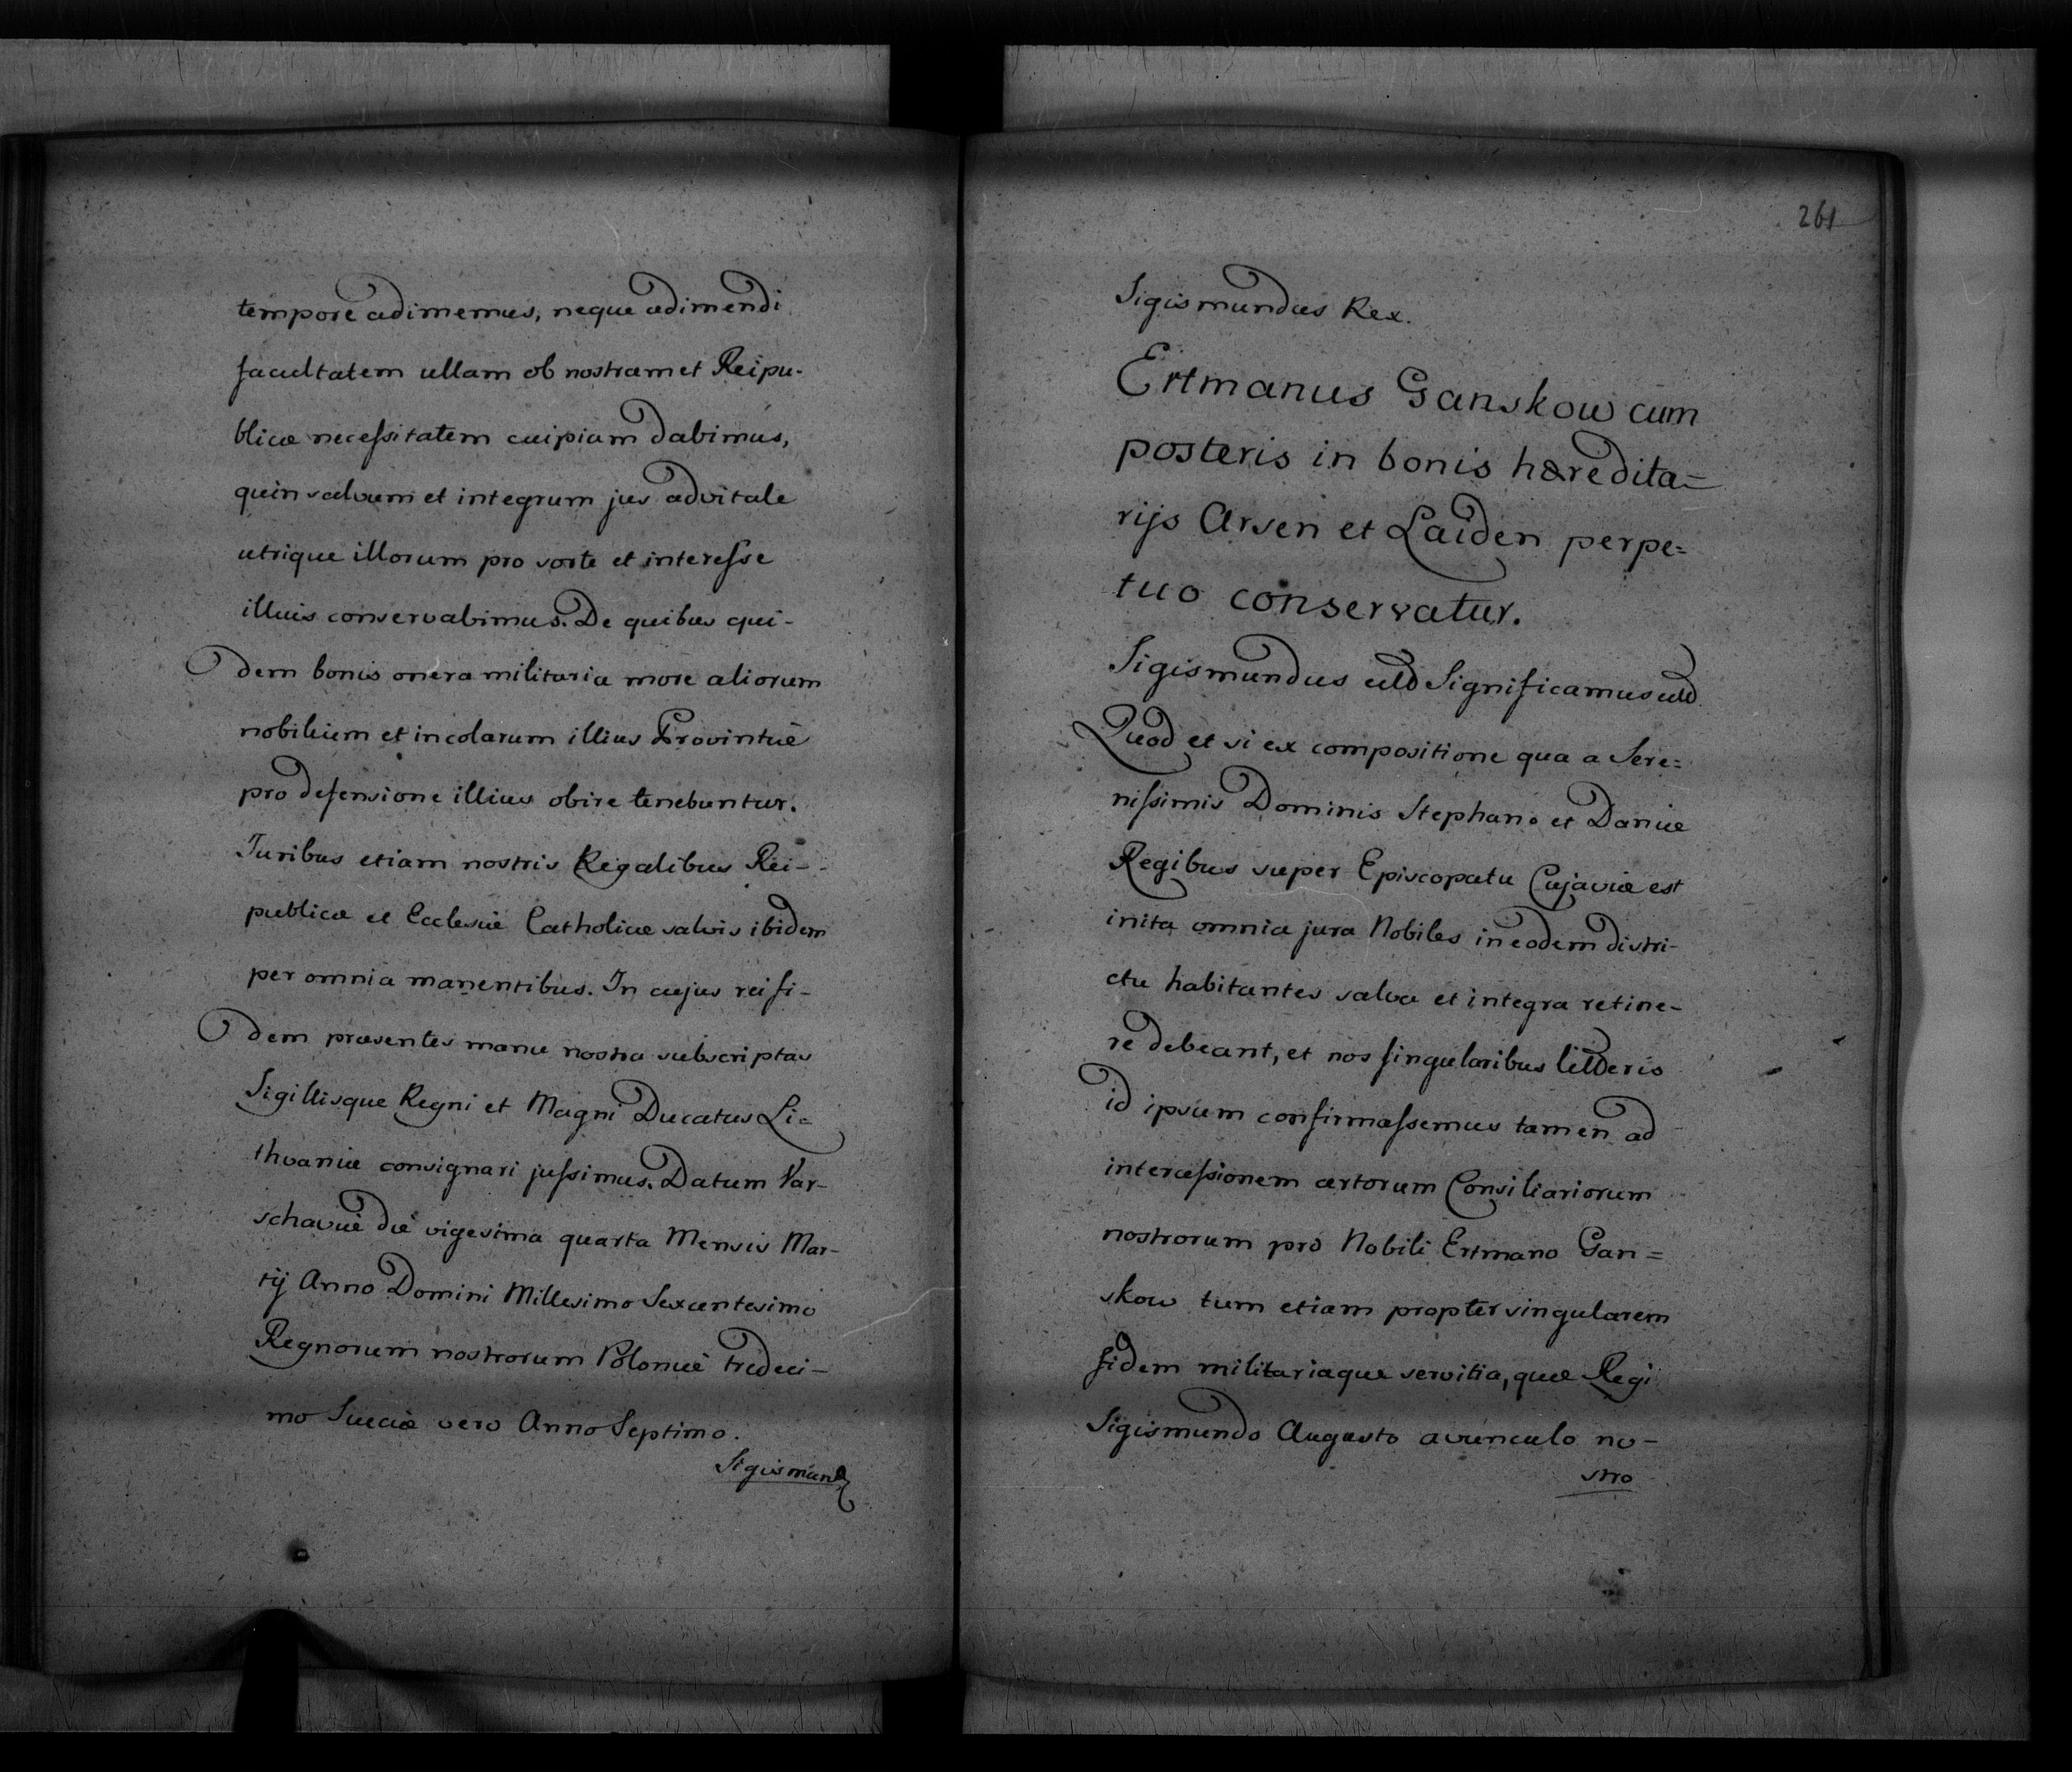 tempore adimemus, neque adimendi
facultatem ullam ob nostram et Reipu-
blicæ necessitatem cuipiam dabimus,
quin salvum et integrum jus advitale
utrique illorum pro sorte et interesse
illius conservabimus. De quibus qui-
dem bonis onera militaria more aliorum
nobilium et incolarum illius Provintiæ
pro defensione illius obire tenebuntur.
Juribus etiam nostris Regalibus Rei-
publicæ et Ecclesiæ Catholicæ salvis ibidem
per omnia manentibus. In cujus rei fi-
dem præsentes manu nostra subscriptas
Sigillisque Regni et Magni Ducatus Li=
thvaniæ consignari jussimus. Datum Var-
schaviæ die vigesima quarta Mensis Mar-
tij Anno Domini Millesimo Sexcentesimo
Regnorum nostrorum Poloniæ tredeci-
mo Sueciæ vero Anno Septimo.
Sigismund
261
Sigismundus Rex.
Ertmanus Ganskow cum
posteris in bonis hæredita=
rijs Arsen et Laiden perpe=
tuo conservatur.
Sigismundus Significamus
Quod et si ex compositione qua a Sere=
nissimis Dominis Stephano et Daniæ
Regibus super Episcopatu Cujaviæ est
inita omnia jura Nobiles in eodem distri-
ctu habitantes salva et integra retine-
re debeant, et nos singularibus litteris
id ipsum confirmassemus tamen ad
intercessionem certorum Consiliariorum
nostrorum pro Nobili Ertmano Gan=
skow tum etiam propter singularem
fidem militariaque servitia, quæ Regi
Sigismundo Augusto avunculo no-
stro